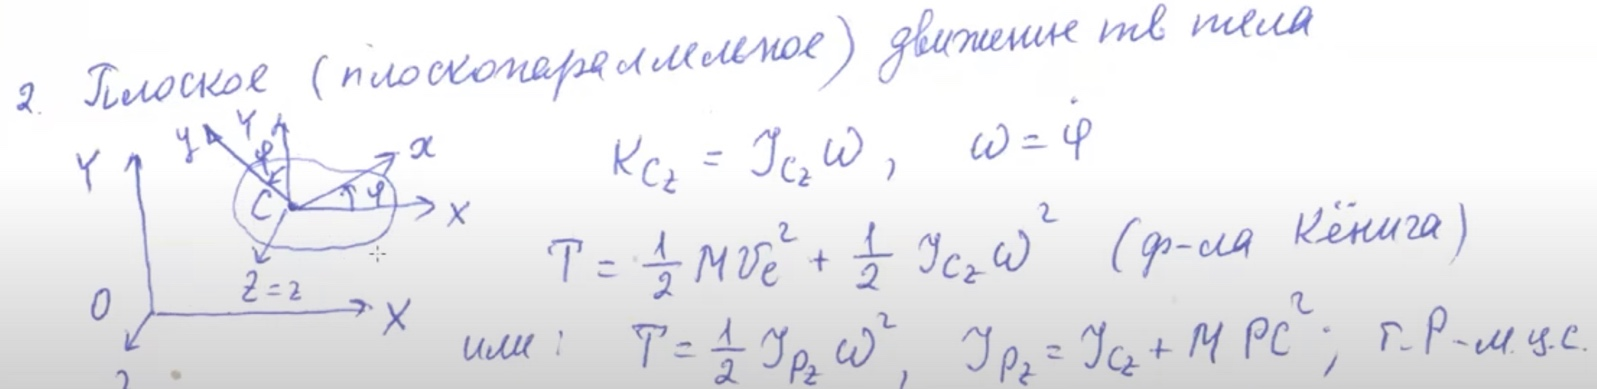 2. Плоское (плоскопараллельное) движение тв тела
y Y x
Y φ
C φ X
Z = z
O X
K_{C_z} = J_{C_z} ω, ω = φ̇
T = 1/2 M v_C² + 1/2 J_{C_z} ω² (ф-ла Кёнига)
или: T = 1/2 J_{P_z} ω², J_{P_z} = J_{C_z} + M PC²; т. P - м.ц.с.